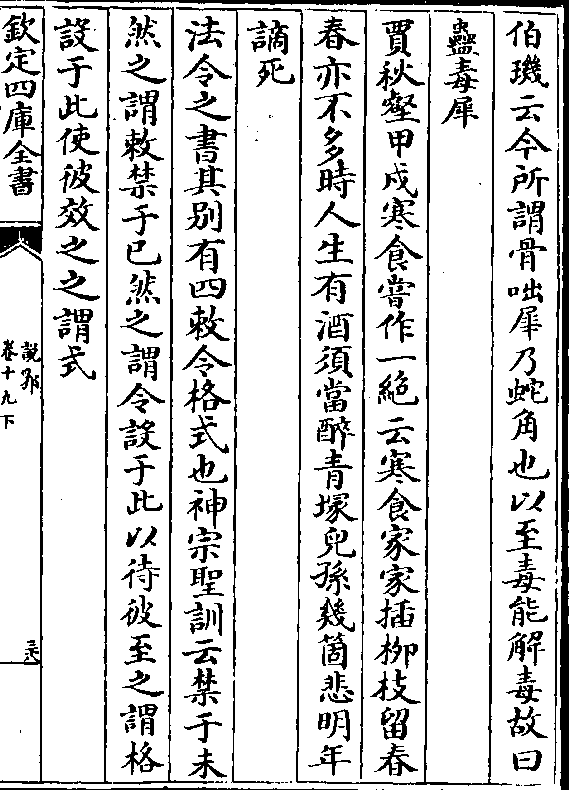 伯璣云今所謂骨咄犀乃蛇角也以至毒能解毒故曰
蠱毒犀
賈秋壑甲戍寒食嘗作一絕云寒食家家插柳枝留春
春亦不多時人生有酒須當醉青塚兒孫幾箇悲明年
謫死
法令之書其别有四敕令格式也神宗聖訓云禁于未
然之謂敕禁于已然之謂令設于此以待彼至之謂格
設于此使彼效之之謂式
欽定四庫全書
説郛
卷十九下
三六